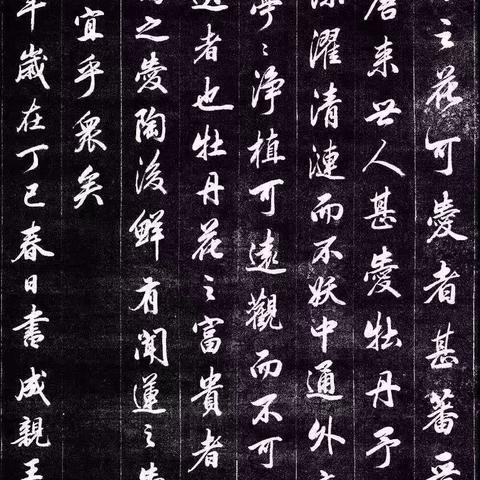 之花可愛者甚蕃
唐来世人甚愛牡丹予
濯清漣而不妖中通外
淨植可遠觀而不可
者也牡丹花之富貴者
之愛陶後鮮有聞蓮之
宜乎衆矣
歲在丁巳春日書成親王